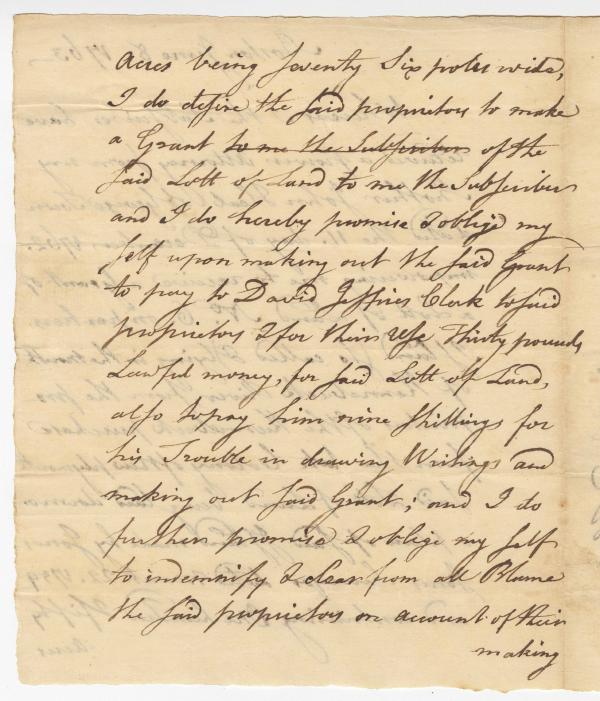 Acres being seventy Six poles wide,
I do desire the said proprietors to make
a Grant to me the Subscriber of the
said Lott of Land to me the Subscriber
and I do hereby promise & oblige my
self upon making out the said Grant
to pay to David Jeffries Clerk to said
proprietors & for their Use Thirty pounds
Lawful money, for said Lott of Land,
also to pay him nine shillings for
his Trouble in drawing Writings and
making out said Grant; and I do
further promise & oblige my self
to indemnify & clear from all Blame
the said proprietors on account of their
making